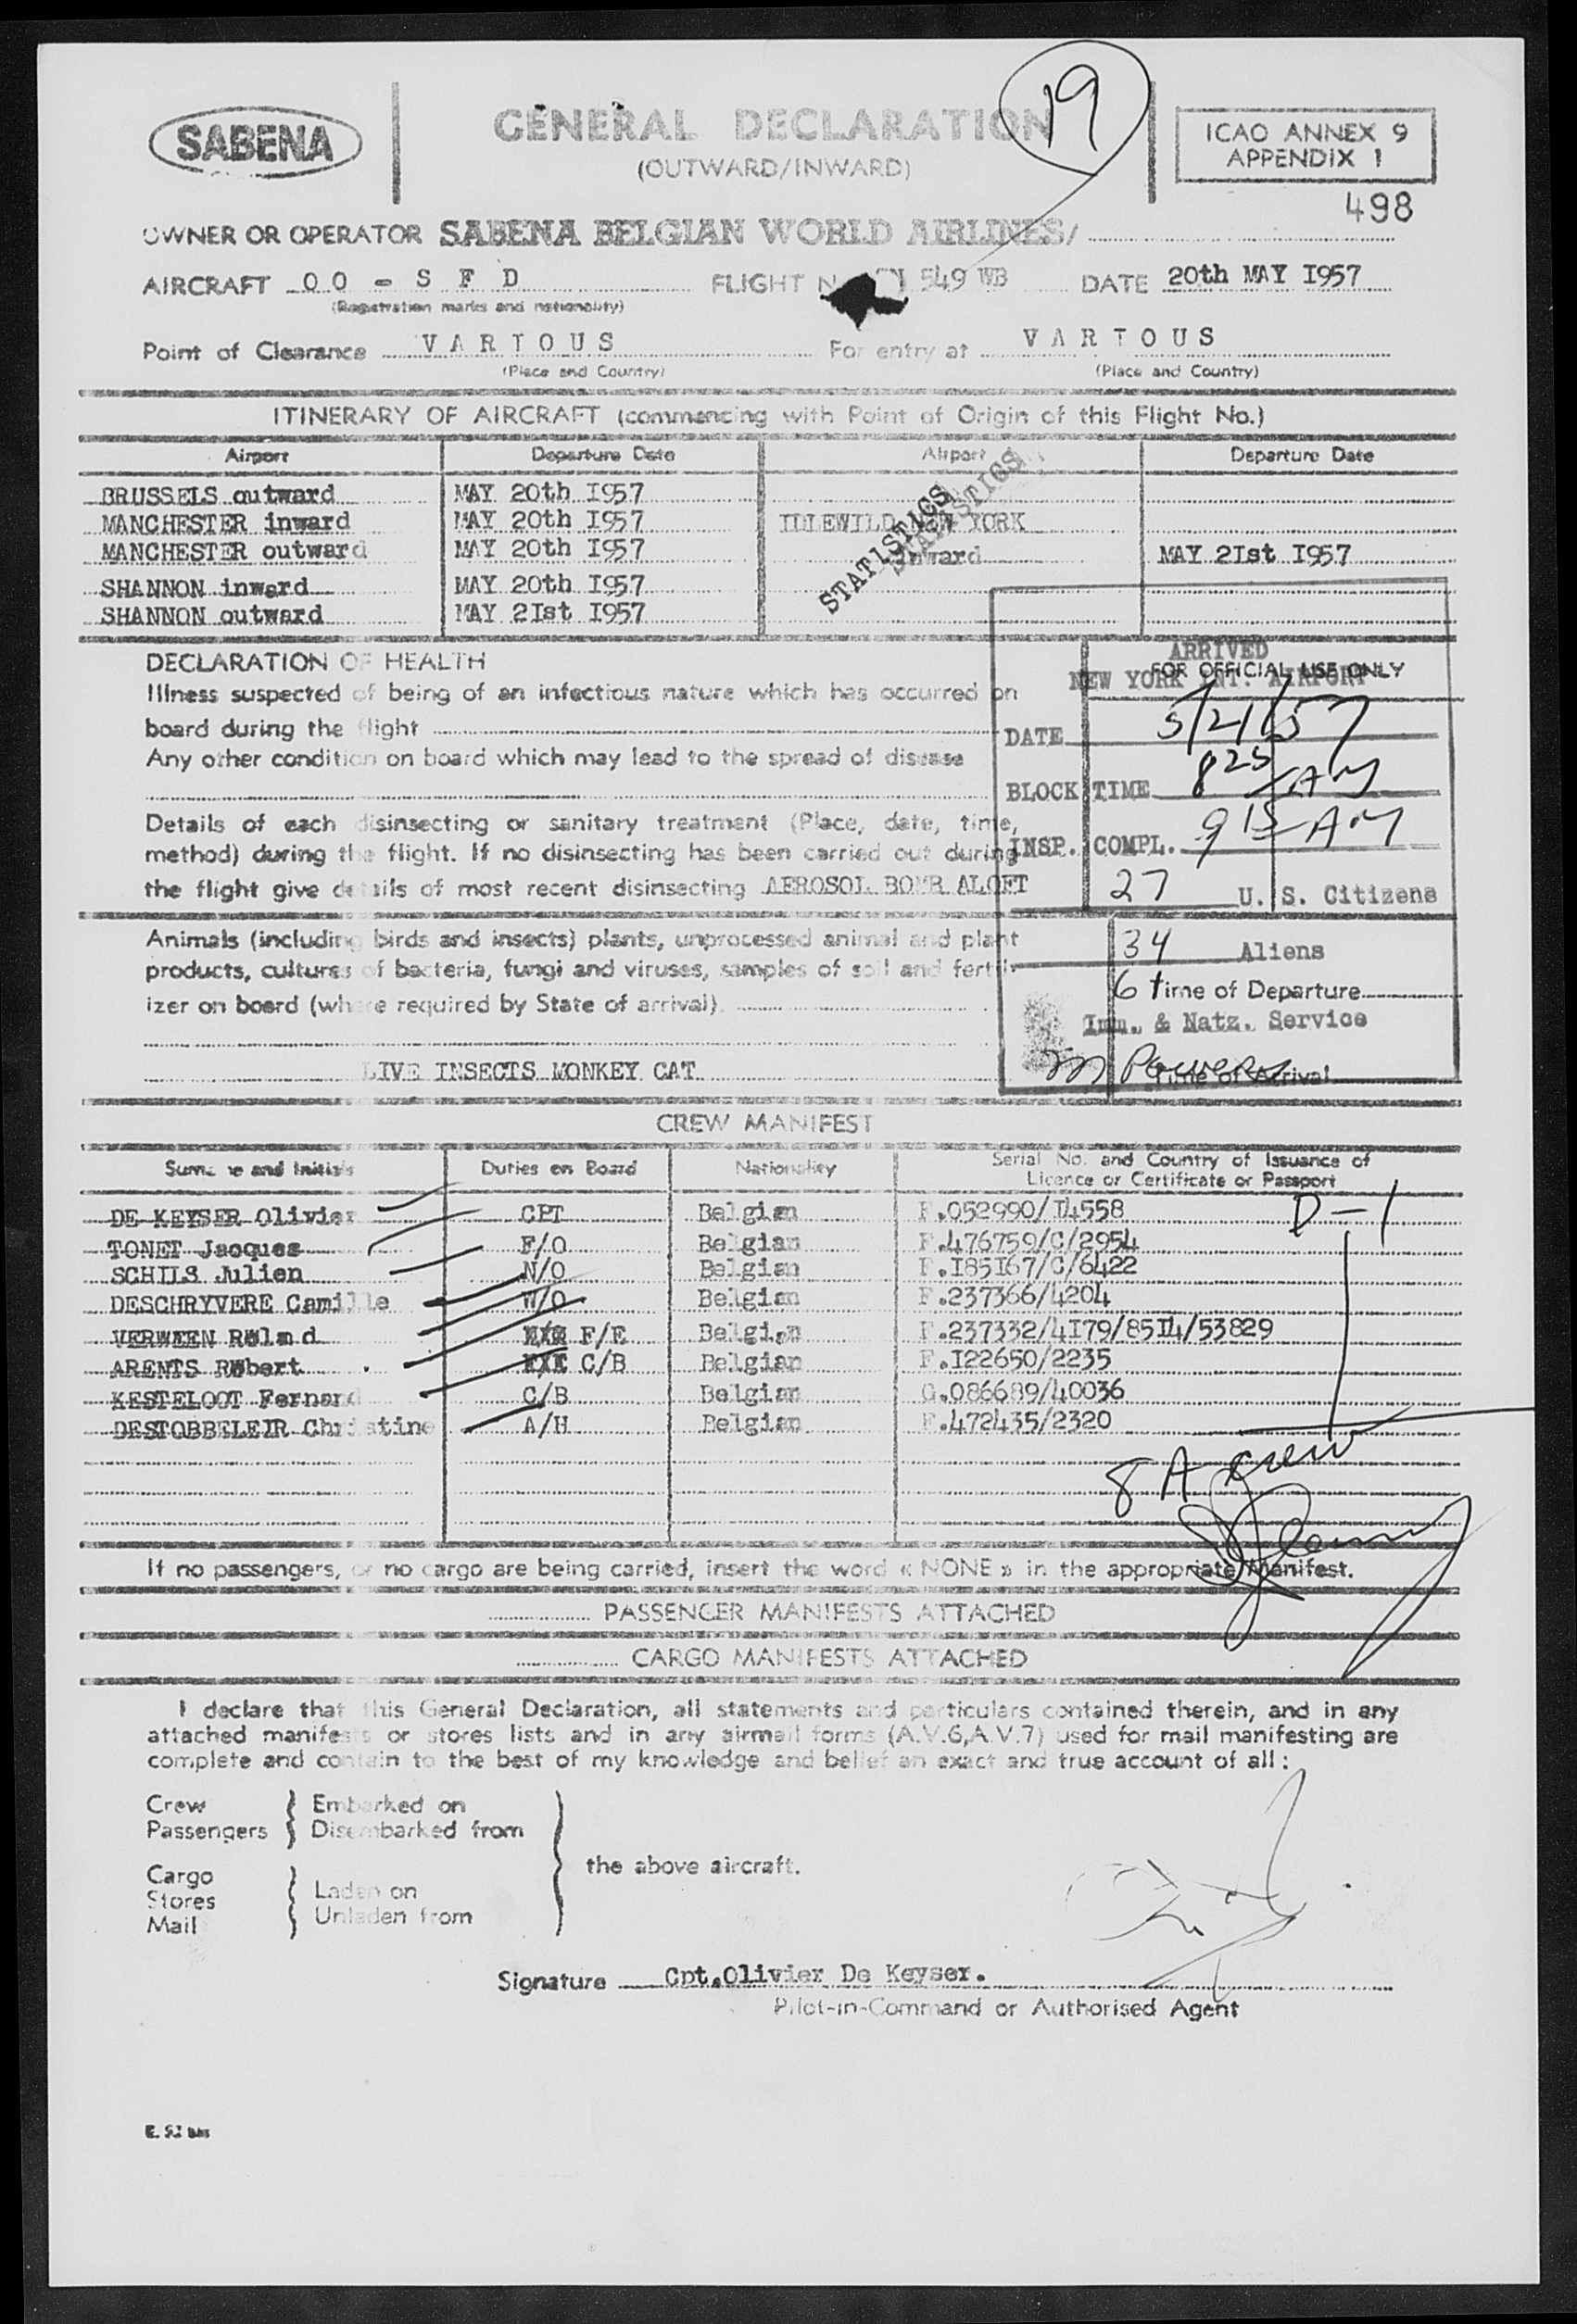 19
SABENA
GENERAL DECLARATION
(OUTWARD/INWARD)
ICAO ANNEX 9
APPENDIX 1
498
OWNER OR OPERATOR SABENA BELGIAN WORLD AIRLINES/
AIRCRAFT OO - S F D FLIGHT 549 WB DATE 20th MAY I957
(Registration marks and nationality)
Point of Clearance VARIOUS For entry at VARIOUS
(Place and Country) (Place and Country)
ITINERARY OF AIRCRAFT (commencing with Point of Origin of this Flight No.)
Airport Departure Date Airport Departure Date
BRUSSELS outward MAY 20th I957
MANCHESTER inward MAY 20th I957 IDLEWILD NEW YORK
MANCHESTER outward MAY 20th I957 inward MAY 2Ist I957
SHANNON inward MAY 20th I957
SHANNON outward MAY 2Ist I957
STATISTICS
STATISTICS
DECLARATION OF HEALTH
Illness suspected of being of an infectious nature which has occurred on
board during the flight
Any other condition on board which may lead to the spread of disease
Details of each disinsecting or sanitary treatment (Place, date, time,
method) during the flight. If no disinsecting has been carried out during
the flight give details of most recent disinsecting AEROSOL BOMB ALOFT
FOR OFFICIAL USE ONLY
ARRIVED
NEW YORK INT. AIRPORT
DATE 5/21/57
BLOCK TIME 825 AM
INSP. COMPL. 915 AM
27 U. S. Citizens
34 Aliens
61
Time of Departure
Imm. & Natz. Service
Time of Arrival
Animals (including birds and insects) plants, unprocessed animal and plant
products, cultures of bacteria, fungi and viruses, samples of soil and fertil-
izer on board (where required by State of arrival).
LIVE INSECTS MONKEY CAT
CREW MANIFEST
Surname and Initials Duties on Board Nationality Serial No. and Country of Issuance of
Licence or Certificate or Passport
DE KEYSER Olivier CPT Belgian F.052990/I4558 D-1
TONET Jacques F/O Belgian F.476759/C/2954
SCHILS Julien N/O Belgian F.I85I67/C/6422
DESCHRYVERE Camille W/O Belgian F.237366/4204
VERWEEN Roland F/E Belgian F.237332/4I79/85I4/53829
ARENTS Robert C/B Belgian F.I22650/2235
KESTELOOT Fernand C/B Belgian G.086689/40036
DESTOBBELEIR Christine A/H Belgian F.472435/2320
8 A crew
If no passengers, or no cargo are being carried, insert the word « NONE » in the appropriate Manifest.
PASSENGER MANIFESTS ATTACHED
CARGO MANIFESTS ATTACHED
I declare that this General Declaration, all statements and particulars contained therein, and in any
attached manifests or stores lists and in any airmail forms (A.V.6,A.V.7) used for mail manifesting are
complete and contain to the best of my knowledge and belief an exact and true account of all :
Crew Embarked on
Passengers Disembarked from
the above aircraft.
Cargo
Stores Laden on
Mail Unladen from
Signature Cpt.Olivier De Keyser.
Pilot-in-Command or Authorised Agent